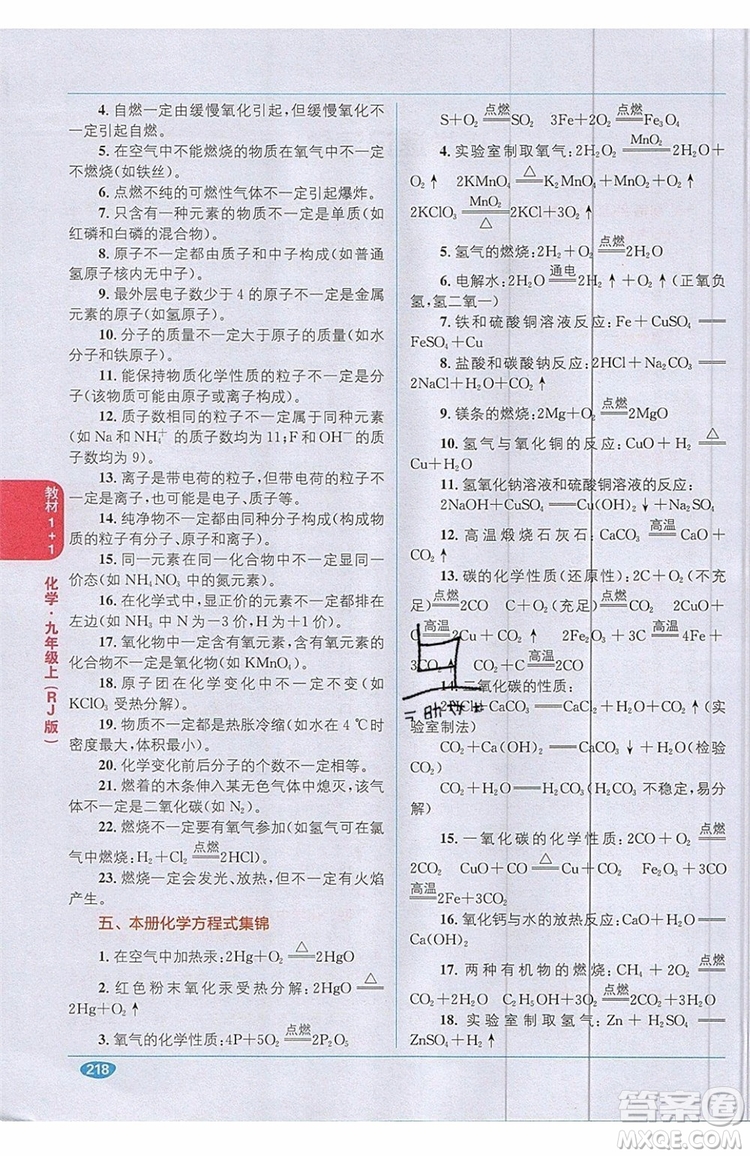 4. 自燃一定由缓慢氧化引起，但缓慢氧化不
一定引起自燃。
5. 在空气中不能燃烧的物质在氧气中不一定
不燃烧（如铁丝）。
6. 点燃不纯的可燃性气体不一定引起爆炸。
7. 只含有一种元素的物质不一定是单质（如
红磷和白磷的混合物）。
8. 原子不一定由质子和中子构成（如普通
氢原子核内无中子）。
9. 最外层电子数少于 4 的不一定是金属
元素的原子（如氢原子）。
10. 分子的质量不一定大于原子的质量（如水
分子和铁原子）。
11. 能保持物质化学性质的粒子不一定是分
子（该物质可能由原子或离子构成）。
12. 质子数相同的粒子不一定属于同种元素
（如 Na 和 NH₄⁺ 的质子数均为 11；F 和 OH⁻ 的质子
数均为 9）。
13. 离子是带电荷的粒子，但带电荷的粒子
不一定是离子（如质子、电子）。
14. 纯净物不一定由同种分子构成（构成物
质的粒子有分子、原子、离子）。
15. 同一元素在同一化合物中不一定显同一
价态（如 NH₄NO₃ 中的氮元素）。
16. 在化学式中，显正价的元素不一定排在
左边（如 NH₃ 中 N 为－3 价，H 为＋1 价）。
17. 氧化物中一定含有氧元素，含有氧元素的
化合物不一定是氧化物（如 KMnO₄）。
18. 原子团在化学变化中不一定不变（如
KClO₃ 受热分解）。
19. 物质不一定都是热胀冷缩（如水在 4 ℃时
密度最大）。
20. 化学变化前后分子数不一定相等。
21. 燃着的木条伸入某无色气体中熄灭，该气
体不一定是二氧化碳（如 N₂）。
22. 燃烧不一定要有氧气参加（如氢气可在氯
气中燃烧：H₂＋Cl₂ 点燃═ 2HCl）。
23. 燃烧一定会发光、放热，但不一定有火焰
产生。
五、本册化学方程式集锦
1. 在空气中加热汞：2Hg＋O₂ △═ 2HgO
2. 红色粉末氧化汞受热分解：2HgO △═
2Hg＋O₂↑
3. 氧气的化学性质：4P＋5O₂ 点燃═ 2P₂O₅
S＋O₂ 点燃═ SO₂ 3Fe＋2O₂ 点燃═ Fe₃O₄
4. 实验室制取氧气：2H₂O₂ MnO₂═ 2H₂O＋
O₂↑ 2KMnO₄ △═ K₂MnO₄＋MnO₂＋O₂↑
2KClO₃ MnO₂═△ 2KCl＋3O₂↑
5. 氢气的燃烧：2H₂＋O₂ 点燃═ 2H₂O
6. 电解水：2H₂O 通电═ 2H₂↑＋O₂↑（正氧负
氢，氢二氧一）
7. 铁和硫酸铜溶液反应：Fe＋CuSO₄═
FeSO₄＋Cu
8. 盐酸和碳酸钠反应：2HCl＋Na₂CO₃═
2NaCl＋H₂O＋CO₂↑
9. 镁条的燃烧：2Mg＋O₂ 点燃═ 2MgO
10. 氢气与氧化铜的反应：CuO＋H₂ △═
Cu＋H₂O
11. 氢氧化钠溶液和硫酸铜溶液的反应：
2NaOH＋CuSO₄═Cu(OH)₂↓＋Na₂SO₄
12. 高温煅烧石灰石：CaCO₃ 高温═ CaO＋
CO₂↑
13. 碳的化学性质（还原性）：2C＋O₂（不充
足）点燃═ 2CO C＋O₂（充足）点燃═ CO₂ C＋2CuO
高温═ 2Cu＋CO₂↑ 3C＋2Fe₂O₃ 高温═ 4Fe＋
3CO₂↑ CO₂＋C 高温═ 2CO
14. 二氧化碳的性质：
CaCO₃＋2HCl═CaCl₂＋H₂O＋CO₂↑（实
验室制法）
CO₂＋Ca(OH)₂═CaCO₃↓＋H₂O（检验
CO₂）
CO₂＋H₂O═H₂CO₃（不稳定，易分
解）
15. 一氧化碳的化学性质：2CO＋O₂ 点燃═
2CO₂ CuO＋CO △═ Cu＋CO₂ Fe₂O₃＋3CO
高温═ 2Fe＋3CO₂
16. 氧化钙与水的放热反应：CaO＋H₂O═
Ca(OH)₂
17. 两种有机物的燃烧：CH₄＋2O₂ 点燃═
CO₂＋2H₂O C₂H₅OH＋3O₂ 点燃═ 2CO₂＋3H₂O
18. 实验室制取氢气：Zn＋H₂SO₄═
ZnSO₄＋H₂↑
教材1+1
化学·九年级上（RJ版）
218
答案圈
MXQE.COM